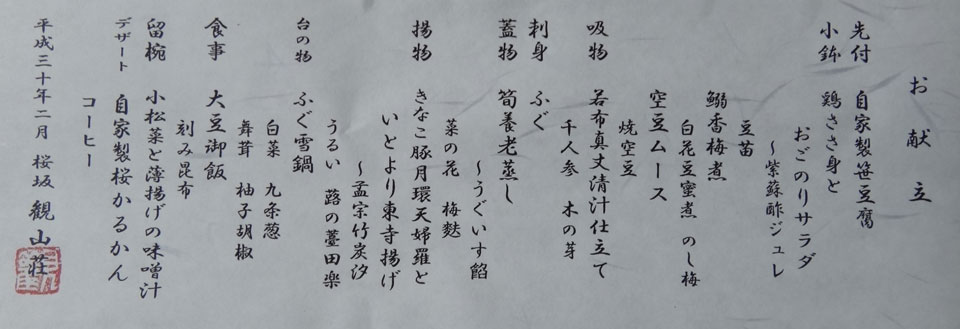 お献立
先付 自家製笹豆腐
小鉢 鶏ささ身と
おごのりサラダ
～紫蘇酢ジュレ
豆苗
鰯香梅煮
白花豆蜜煮 のし梅
空豆ムース
焼空豆
吸物 若布真丈清汁仕立て
千人参 木の芽
刺身 ふぐ
蓋物 筍養老蒸し
～うぐいす餡
菜の花 梅麩
揚物 きなこ豚月環天婦羅と
いとより東寺揚げ
～孟宗竹炭汐
うるい 蕗の薹田楽
台の物 ふぐ雪鍋
白菜 九条葱
舞茸 柚子胡椒
食事 大豆御飯
刻み昆布
留椀 小松菜と薄揚げの味噌汁
デザート 自家製桜かるかん
コーヒー
平成三十年二月 桜坂 観山荘